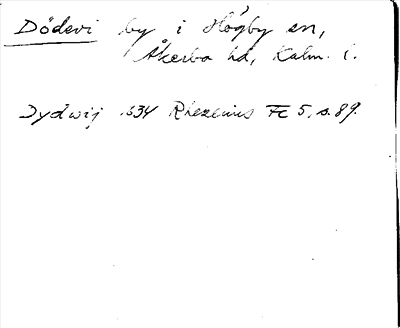 Dödevi by i Högby sn,
Åkerbo hd, Kalm. l.
Dydwij 1634 Rhezelius Fc 5, s. 89.